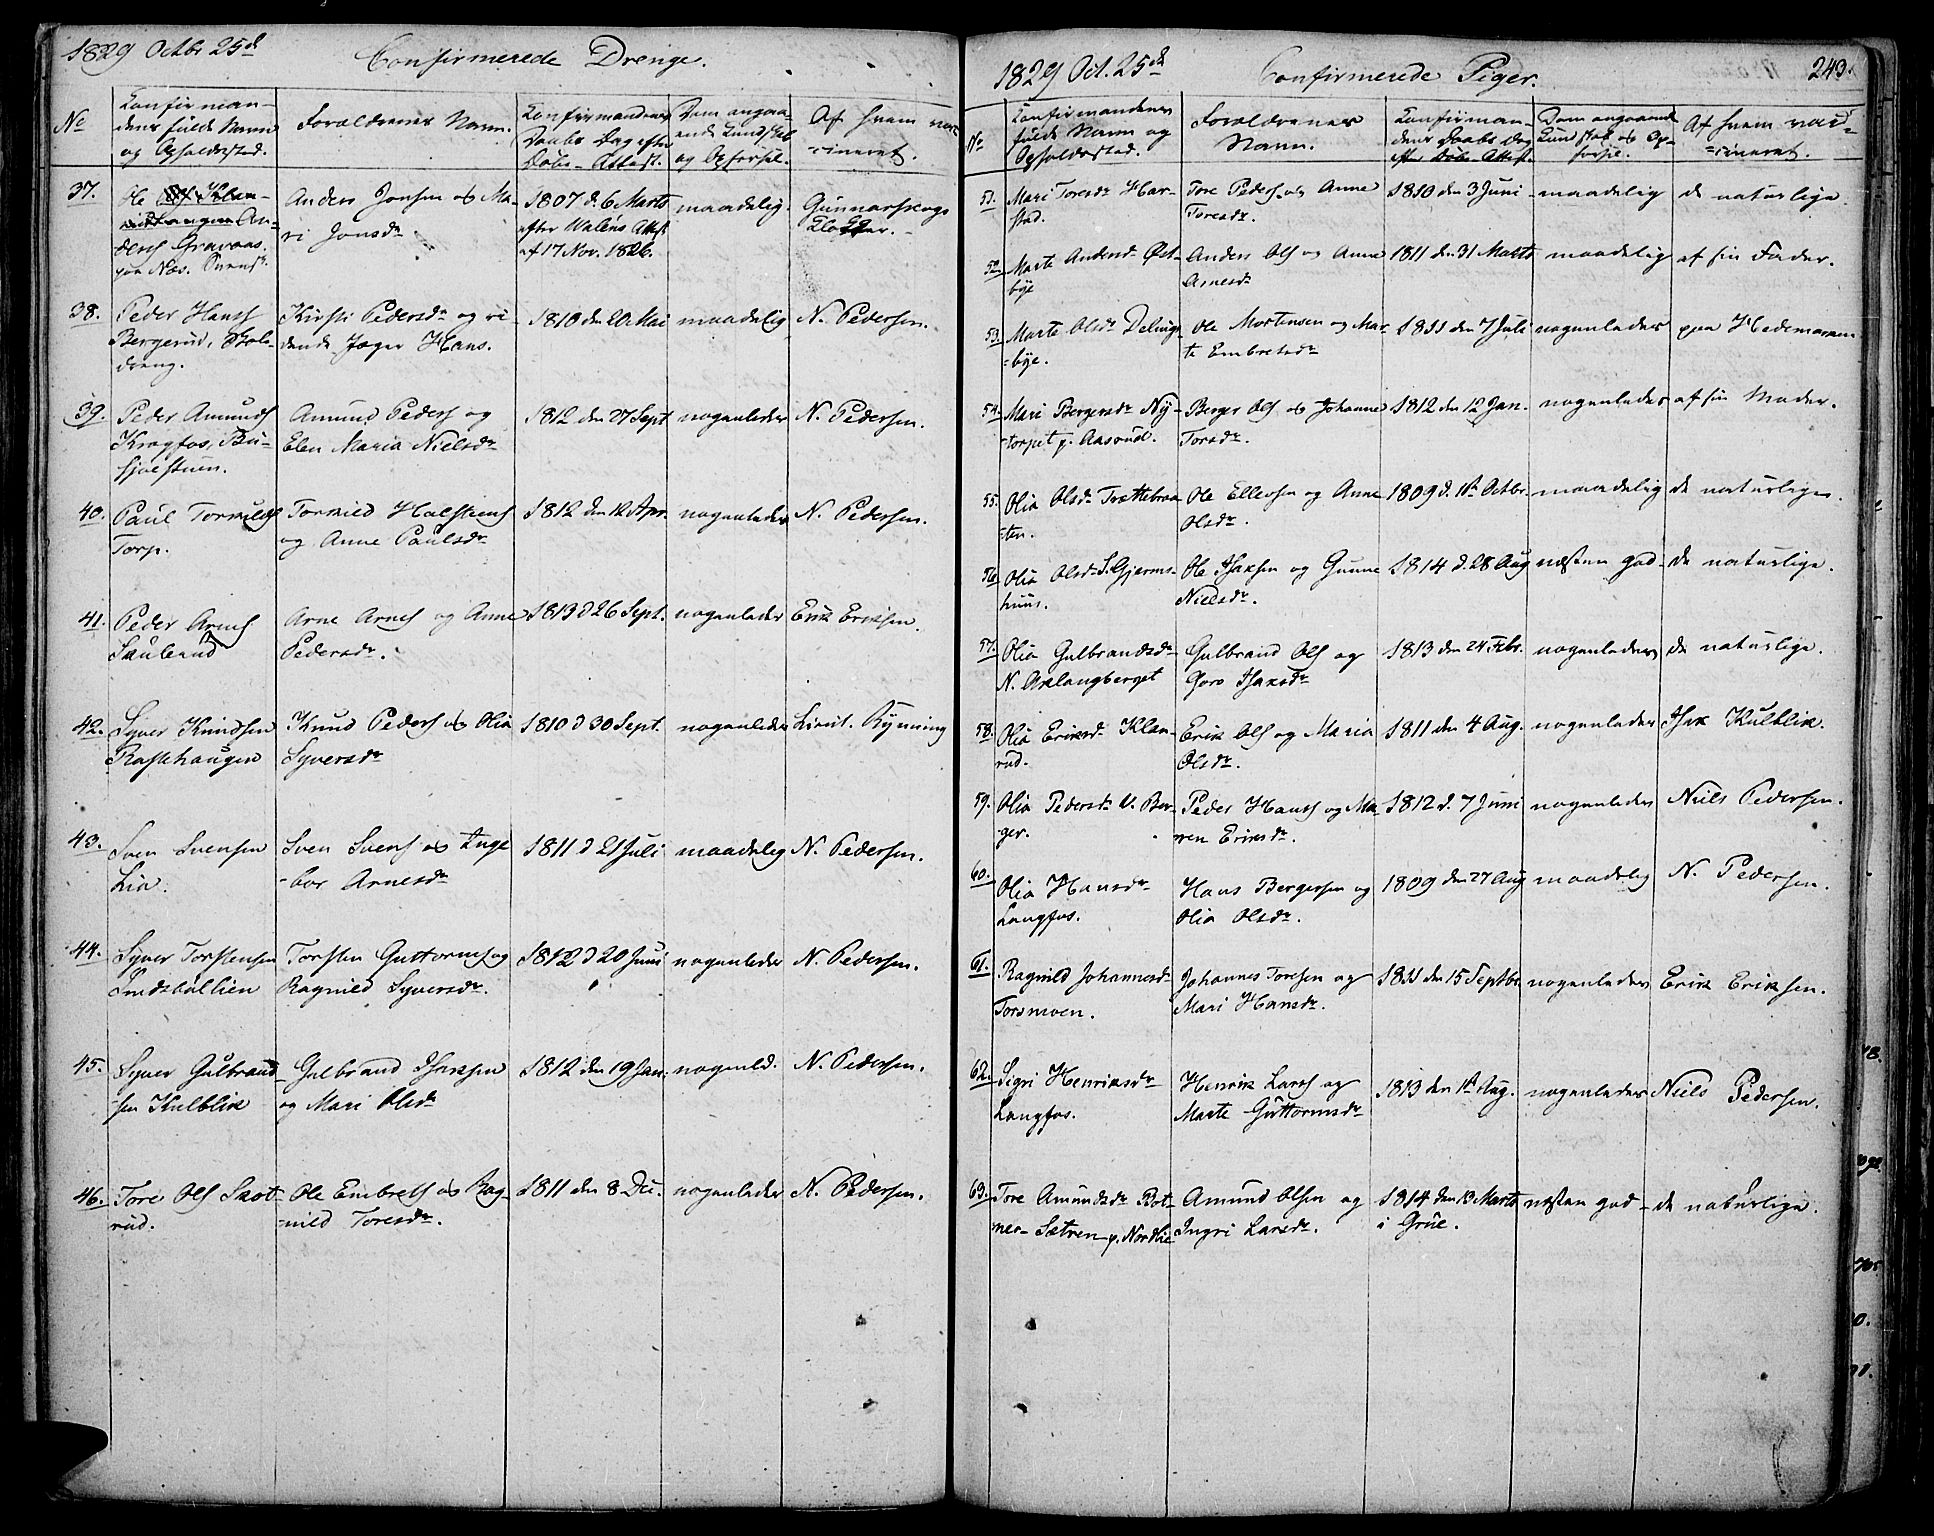 1829 Octbr 25de
Confirmerede Drenge.
No
Confirmandens fulde Navn og Opholdssted.
Forældrenes Navn.
Confirmandens Daabs Dag efter Døbe-Attest.
Dom angaaende Kundskab og Opførsel.
Af hvem vaccineret.
37. Ole Andersen Gravaas paa Næs.
Anders Jonsen og Mari Jonsdr
1807 d. 6 Marts efter Attest af 17 Nov. 1826.
maadelig.
Gunnarskogs Klokker.
38. Peder Hansen Bergerud, Skoledreng.
Kirsti Pedersdr og ridende Jæger Hans.
1810 den 20 Mai
maadelig
N. Pedersen.
39. Peder Amunds Kragfos,
Amund Peders og Elen Maria Nielsdr
1812 den 27 Sept
nogenledes
N. Pedersen.
40. Paul Tormilds Torp.
Tormild Halstens og Anne Paulsdr
1812 den 12 Apr.
nogenledes
N. Pedersen.
41. Peder Arnes Skulerud
Arne Arnes og Anne Pedersdr.
1813 d 26 Sept.
nogenledes
Erik Eriksen.
42. Syver Knudsen Rastehaugen
Knud Peders og Olia Syversdr
1810 d 30 Sept.
nogenledes
Lieut. Rynning
43. Sven Svensen Lia.
Sven Svens og Ingebor Arnesdr
1811 d 21 Juli
maadelig
N. Pedersen.
44. Syver Torstensen
Torsten Guttorms og Ragnild Syversdr.
1812 d 20 Juni
nogenledes
N. Pedersen.
45. Syver Gulbrandsen Kulblik
Gulbrand Isaksen og Mari Olsdr
1812 den 19 Jan.
nogenled.
N. Pedersen.
46. Tore Ols Skotrud.
Ole Embrets og Ragnild Toresdr.
1811 den 8 Dec.
nogenledes
N. Pedersen.
1829 Oct. 25de
Confirmerede Piger.
243.
No
Confirmandens fulde Navn og Opholdssted.
Forældrenes Navn.
Confirmandens Daabs Dag efter Døbe Attest.
Dom angaaende Kundskab og Opførsel.
Af hvem vaccineret.
51. Mari Toresdr Harstad.
Tore Peders og Anne Toresdr.
1810 den 3 Juni
maadelig
de naturlige.
52. Marte Andersdr Østbye
Anders Ols og Anne Arnesdr
1811 den 31 Marts
maadelig
af sin Fader.
53. Marte Olsdr Delingbye.
Ole Mortensen og Marte Embretsdr
1811 den 7 Juli
nogenledes
paa Hedemarken
54. Mari Bergersdr Nytorpet p. Aasrud.
Berger Ols og Johanne Torsdr.
1812 den 12 Jan.
nogenledes
af sin Moder.
55. Olia Olsdr Trættebraaten.
Ole Ellevsen og Anne Olsdr.
1809 d. 1st Octbr.
maadelig
de naturlige.
56. Olia Olsdr S. Gjermshuus.
Ole Isaksen og Gunne Nielsdr.
1814 d. 28 Aug
næsten god
de naturlige.
57. Olia Gulbrandsdr N. Arlangberget
Gulbrand Ols og Goro Isaksdr
1813 den 24 Febr.
nogenledes
de naturlige.
58. Olia Eriksdr Klanrud.
Erik Ols og Maria Olsdr.
1811 den 4 Aug.
nogenledes
Isak Kulblik.
59. Olia Pedersdr V. Berger.
Peder Hans og Maren Eriksdr.
1812 d. 7 Juni
nogenledes
Niels Pedersen.
60. Olia Hansdr Langfos.
Hans Bergersen og Olia Olsdr.
1809 den 27 Aug
maadelig
N. Pedersen.
61. Ragnild Johannesdr Torsmoen.
Johannes Toresen og Mari Hansdr.
1811 den 15 Septbr.
nogenledes
Erik Eriksen.
62. Sigri Henriksdr Langfos.
Henrik Lars og Marte Guttormsdr
1813 den 1st Aug.
nogenledes
Niels Pedersen.
63. Tore Amundsdr Sætren p. Nordlie
Amund Olsen og Ingri Larsdr.
1814 den 13 Marts i Grue.
næsten god
de naturlige.